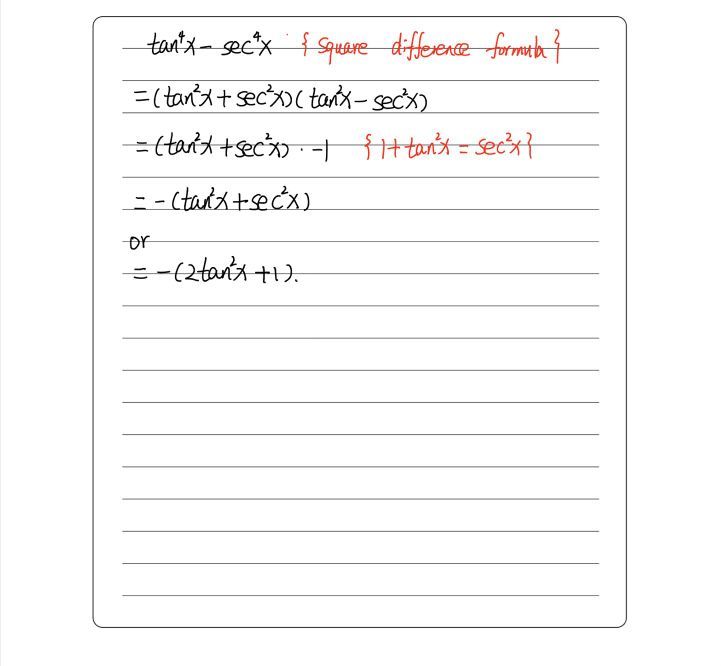 tan⁴x - sec⁴x { square difference formula }
= (tan²x + sec²x)(tan²x - sec²x)
= (tan²x + sec²x) · -1 { 1 + tan²x = sec²x }
= - (tan²x + sec²x)
or
= - (2tan²x + 1).